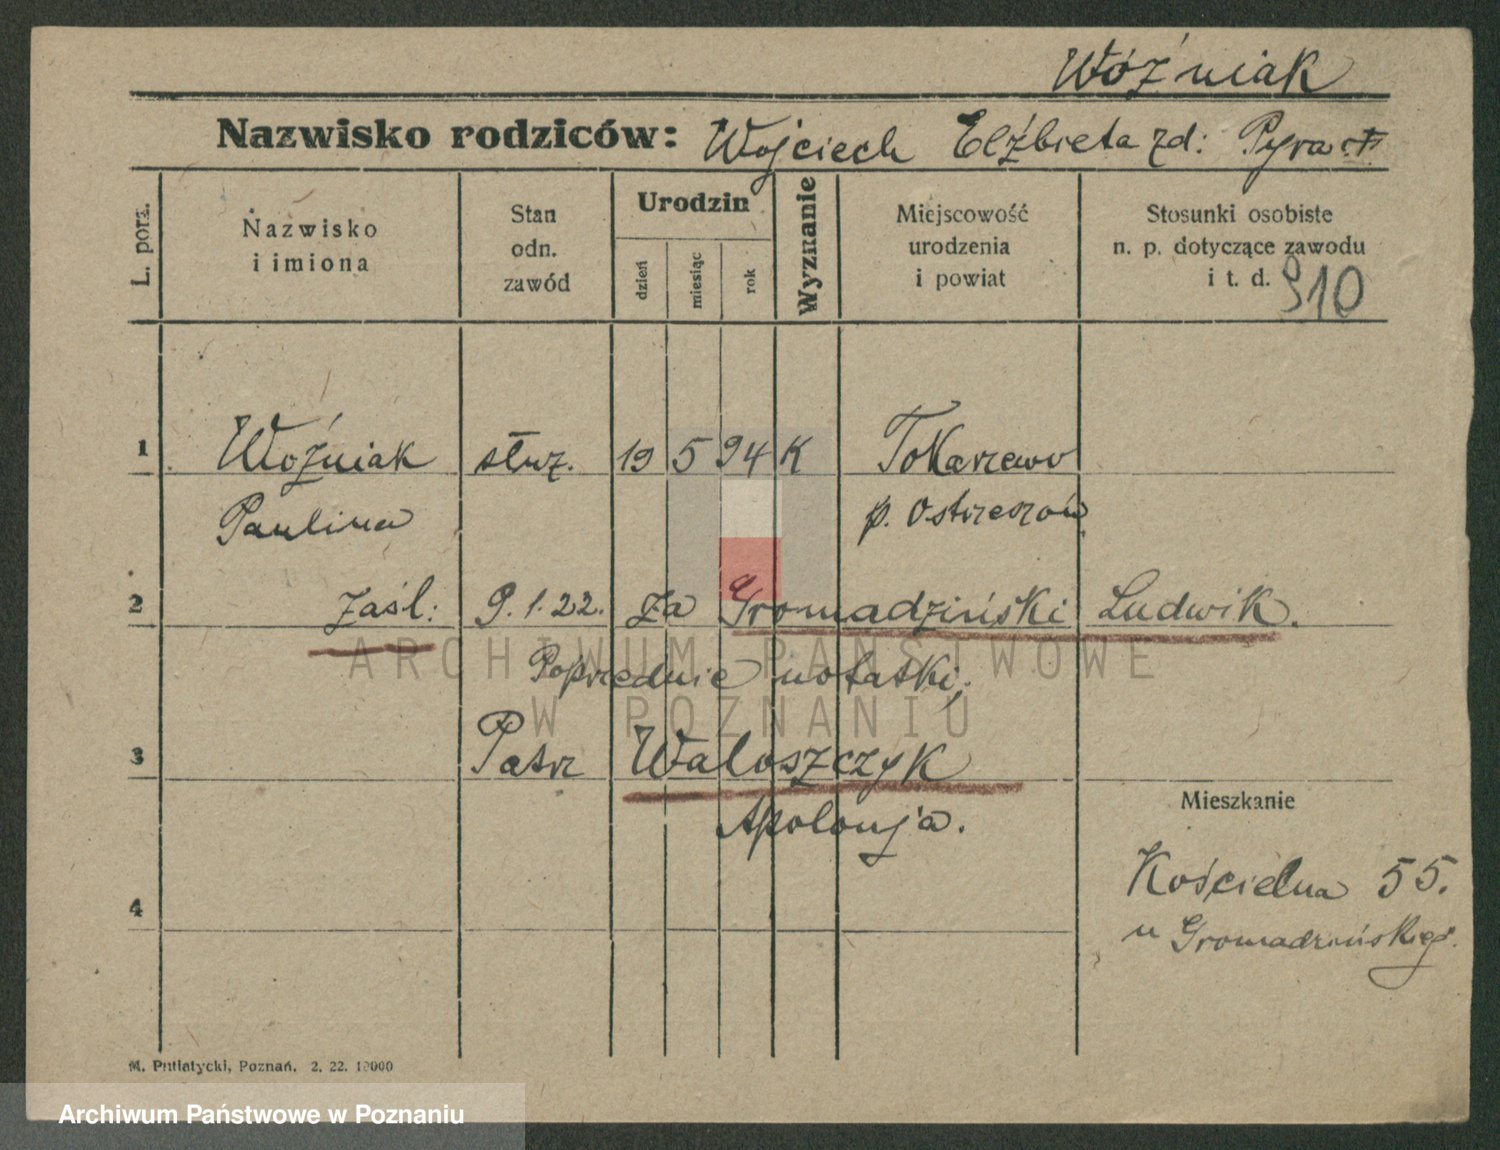 Wóźniak
Nazwisko rodziców: Wojciech Elżbieta zd:
L. porz.
Nazwisko
i imiona
Stan
odn.
zawód
Urodzin
dzień
miesiąc
rok
Wyznanie
Miejscowość
urodzenia
i powiat
Stosunki osobiste
n. p. dotyczące zawodu
i t. d.
910
1 Woźniak służ. 19 5 94 K Tokarzewo
Paulina p. Ostrzeszów
2 zaśl: 9.1.22. za Gromadziński Ludwik.
Poprzednie notatki;
3 Patrz Waloszczyk
Apolonja.
Mieszkanie
Kościelna 55.
4
u Gromadzińskieg.
M. Putiatycki, Poznań. 2. 22. 10000
ARCHIWUM PAŃSTWOWE
W POZNANIU
Archiwum Państwowe w Poznaniu